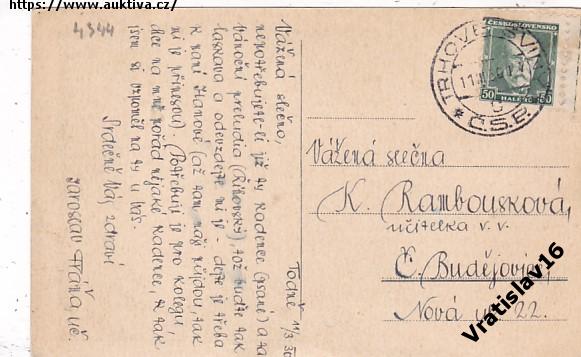 https://www.auktiva.cz/
4344
Todně 11/3 36
Vážená slečno,
nepotřebujete-li již ty kadence (psané) a ta
Vánoční preludia (Říhovský), tož buďte tak
laskavá a odevzdejte mi je - dejte je třeba
k paní Hanové (až tam naši půjdou, tak
mi je přinesou). Potřebuji je pro kolegu,
chce na mně pořád nějaké kadence, a tak
jsem si vzpomněl na ty u Vás.
Srdečně Vás zdraví
Jaroslav Fráňa, uč.
ČESKOSLOVENSKO
50 HALÉŘŮ 50
TRHOVÉ SVINY
Č.S.R.
Vážená slečna
K. Rambousková,
učitelka v. v.
Č. Budějovice,
Nová ul. 22.
Vratislav16